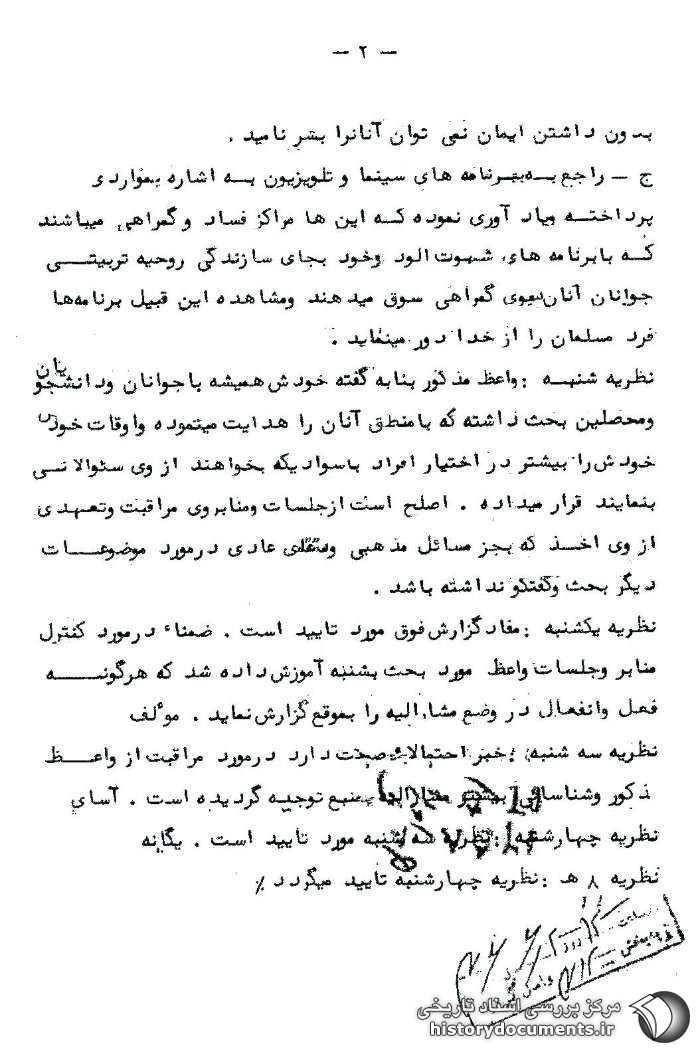 — ۲ —
بدون داشتن ایمان نمی توان آنانرا بشر نامید .
ج — راجع به برنامه های سینما و تلویزیون به اشاره بمواردی
پرداخته ویاد آوری نموده که این ها مراکز فساد و گمراهی میباشند
که بابرنامه های شهوت الود وخود بجای سازندگی روحیه تربیتی
جوانان آنان بسوی گمراهی سوق میدهند ومشاهده این قبیل برنامه‌ها
فرد مسلمان را از خدا دور مینماید .
نظریه شنبه : واعظ مذکور بنابه گفته خودش همیشه باجوانان ودانشجویان
ومحصلین بحث داشته که بامنطق آنان را هدایت مینموده واوقات خود
خودش را بیشتر در اختیار افراد باسوادیکه بخواهند از وی سئوالاتی
بنمایند قرار میداده . اصلح است ازجلسات ومنابروی مراقبت وتعهدی
از وی اخذ که بجز مسائل مذهبی عادی درمورد موضوعات
دیگر بحث وگفتگو نداشته باشد .
نظریه یکشنبه : مفاد گزارش فوق مورد تایید است . ضمناء درمورد کنترل
منابر وجلسات واعظ مورد بحث بشنبه آموزش داده شد که هرگونه
فعل وانفعال در وضع مشارالیه را بموقع گزارش نماید . موٴلف
نظریه سه شنبه : خبر احتمالا صحت دارد درمورد مراقبت از واعظ
مذکور وشناسائی بیشتر منبع توجیه گردیده است . آسای
نظریه چهارشنبه : نظریه سه شنبه مورد تایید است . یگانه
نظریه ۸ هـ : نظریه چهارشنبه تایید میگردد ٪
مرکز بررسی اسناد تاریخی
historydocuments.ir